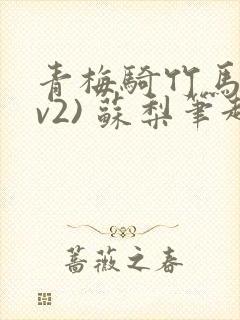 青梅騎竹馬
v2) 蘇梨筆
薔薇之春